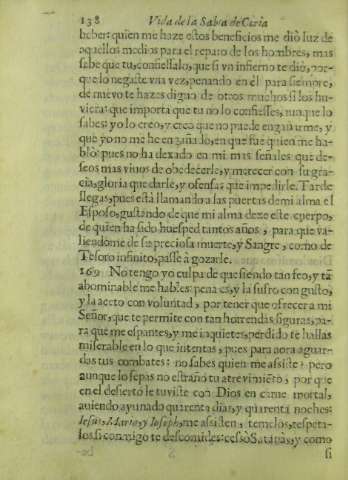 138 Vida de la Sabia de Coria
beber: quien me haze estos beneficios me diò luz de
aquellos medios para el reparo de los hombres, mas
sabe que tu, confiessalo, que si vn infierno te diò, por-
que lo negaste vna vez, penando en èl para siempre,
de nuevo te hazes digno de otros muchos si los hu-
viera: que importa que tu no lo confiesses, ni aun que lo
sabes: yo lo creo, y creo que no puede engañarme, y
que yo no me he engañado, en que fue quien me ha-
blò: pues no ha dexado en mi mas señales que de-
seos mas vivos de obedecerle, y merecer con su gra-
cia, gloria que darle, y ofensas que impedirle. Tarde
llegas, pues està llamando a las puertas de mi alma el
Esposo, gustando de que mi alma dexe este cuerpo,
de quien ha sido huesped tantos años, para que va-
liendome de su preciosa muerte, y Sangre, como de
Tesoro infinito, passe à gozarle.
169 No tengo yo culpa de que siendo tan feo, y tã
abominable me hables: pena es, y la sufro con gusto,
y la aceto con voluntad, por tener que ofrecer a mi
Señor, que te permite con tan horrendas figuras, pa-
ra que me espantes, y me inquietes, perdido te hallas
miserable en lo que intentas, pues para aora aguar-
das tus combates: no sabes quien me assiste, pero
aunque lo sepas no estraño tu atrevimiẽto, por que
en el desierto le tuviste con Dios en carne mortal,
auiendo ayunado quarenta dias, y quarenta noches:
Iesus, Maria, y Ioseph, me assisten, temelos, respeta-
los si conmigo te descomides: cessò Satanas, y como
si